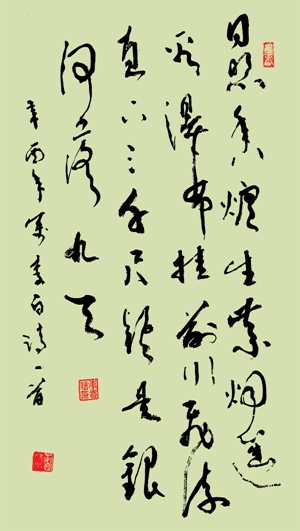 日照香爐生紫烟遥
看瀑布挂前川飛流
直下三千尺疑是銀
河落九天
辛酉年李白詩一首